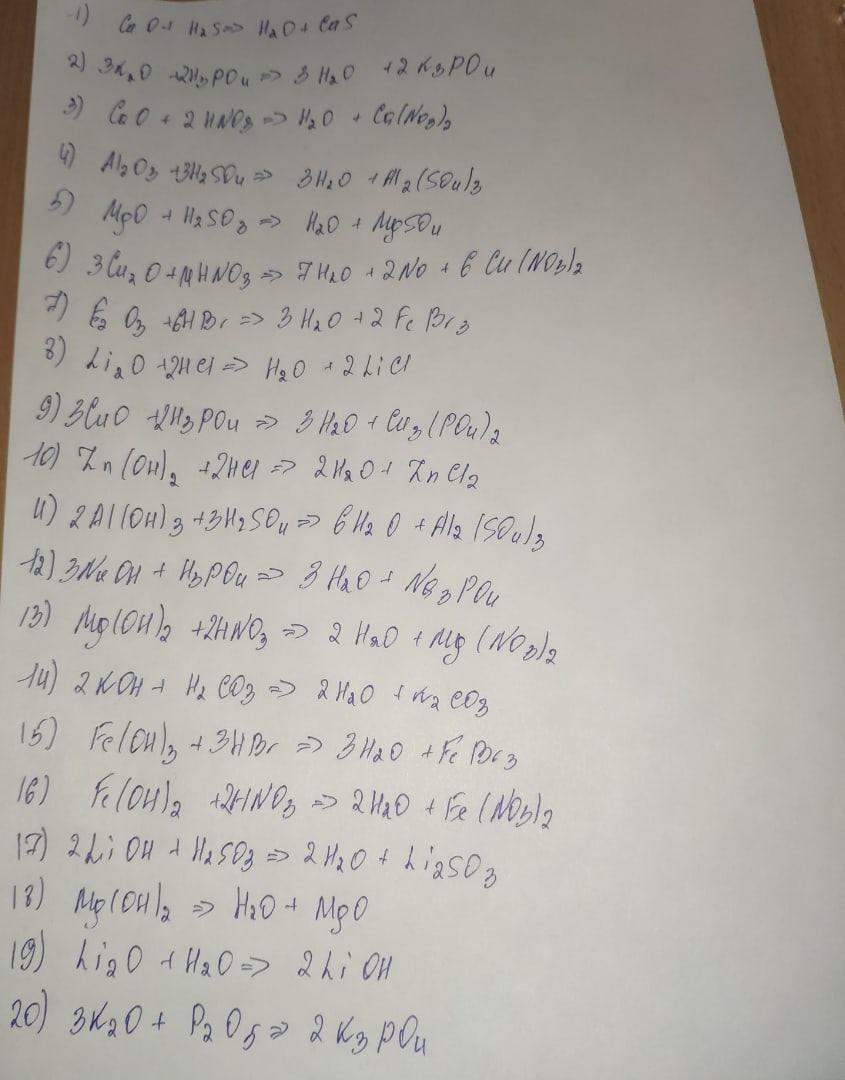 1) CaO + H₂S => H₂O + CaS
2) 3K₂O + 2H₃PO₄ => 3H₂O + 2K₃PO₄
3) CaO + 2HNO₃ => H₂O + Ca(NO₃)₂
4) Al₂O₃ + 3H₂SO₄ => 3H₂O + Al₂(SO₄)₃
5) MgO + H₂SO₃ => H₂O + MgSO₄
6) 3Cu₂O + 14HNO₃ => 7H₂O + 2NO + 6Cu(NO₃)₂
7) Fe₂O₃ + 6HBr => 3H₂O + 2FeBr₃
8) Li₂O + 2HCl => H₂O + 2LiCl
9) 3CuO + 2H₃PO₄ => 3H₂O + Cu₃(PO₄)₂
10) Zn(OH)₂ + 2HCl => 2H₂O + ZnCl₂
11) 2Al(OH)₃ + 3H₂SO₄ => 6H₂O + Al₂(SO₄)₃
12) 3NaOH + H₃PO₄ => 3H₂O + Na₃PO₄
13) Mg(OH)₂ + 2HNO₃ => 2H₂O + Mg(NO₃)₂
14) 2KOH + H₂CO₃ => 2H₂O + K₂CO₃
15) Fe(OH)₃ + 3HBr => 3H₂O + FeBr₃
16) Fe(OH)₂ + 2HNO₃ => 2H₂O + Fe(NO₃)₂
17) 2LiOH + H₂SO₃ => 2H₂O + Li₂SO₃
18) Mg(OH)₂ => H₂O + MgO
19) Li₂O + H₂O => 2LiOH
20) 3K₂O + P₂O₅ => 2K₃PO₄